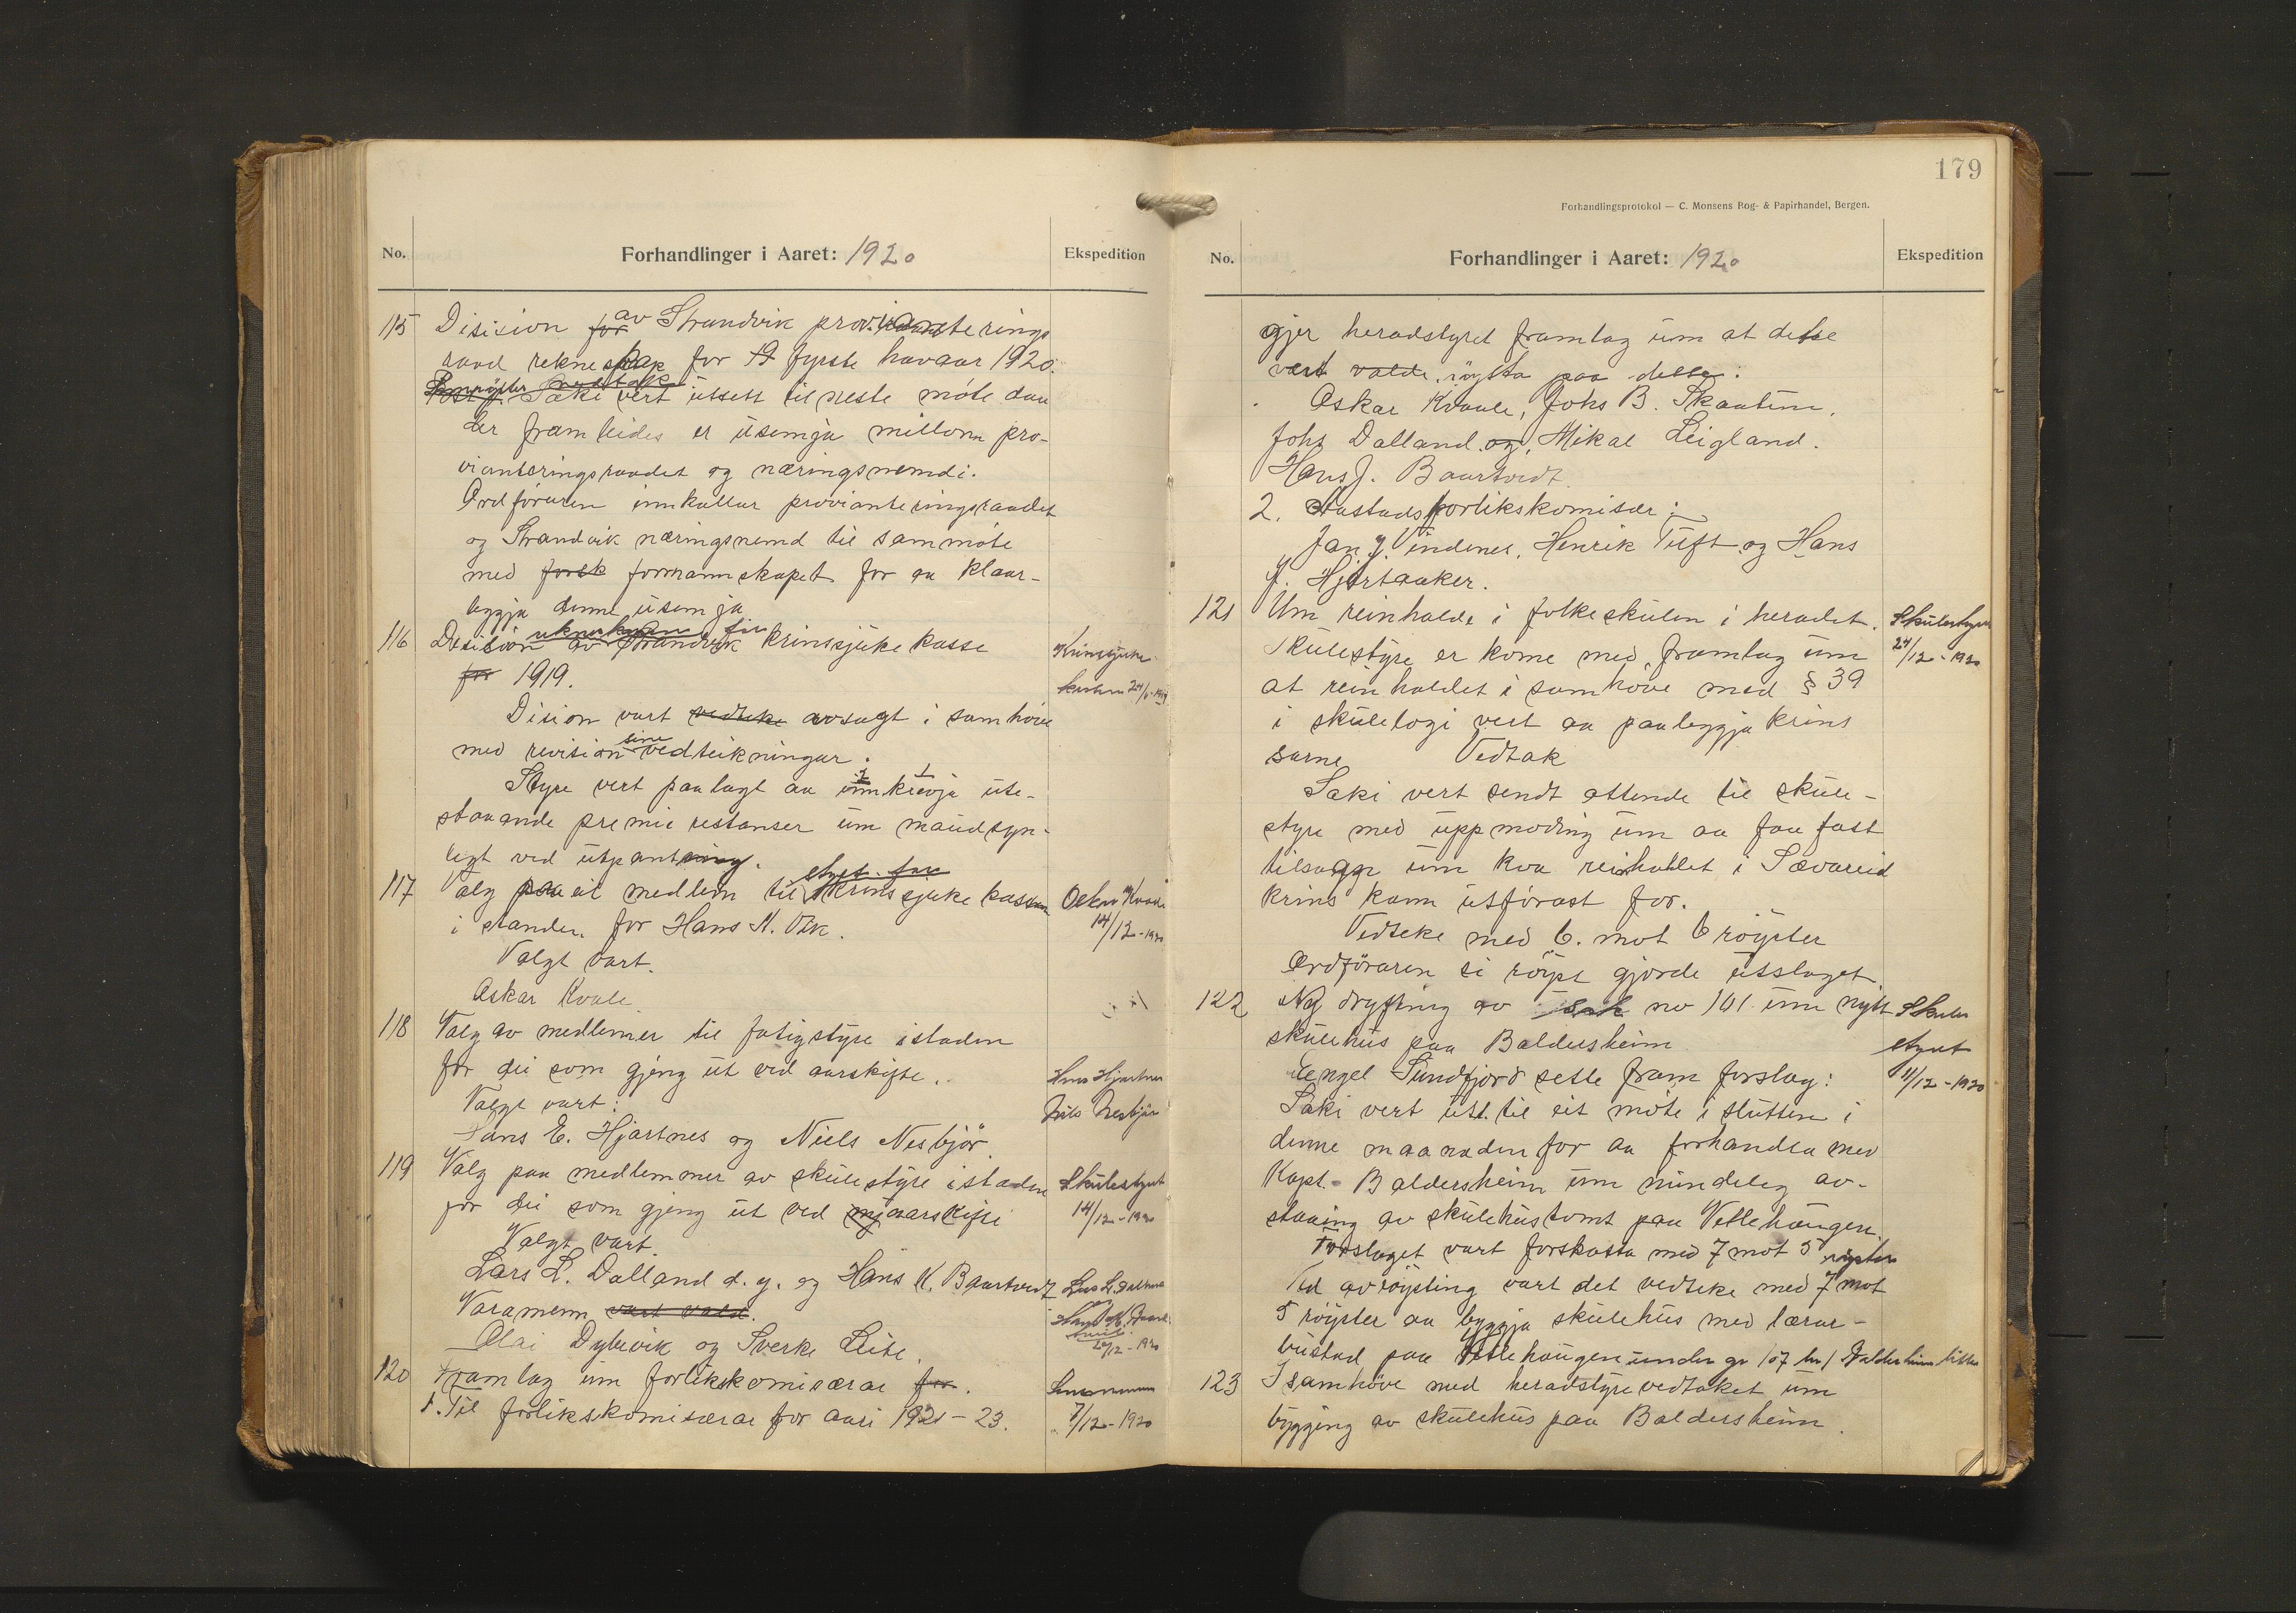 No.
Forhandlinger i Aaret: 1920
Ekspedition
115 Disision for av Strandvik provianterings
raad rekneskap for 19 fyrste havaar 1920.
Saki vert utsett til neste møte daa
der framleides er usemja millom pro-
vianteringsraadet og næringsnemdi.
Ordføraren innkallar provianteringsraadet
og Strandvik næringsnemd til sammøte
med forsk formannskapet for aa klaar-
leggja denne usemja
116 Desision av Strandvik krinssjukekasse
for 1919.
Krinssjuke-
Dision vart vedteke avsagt i samhøve
med revision sine vedteikningar.
Styre vert paalagt aa innkrevja ute-
staaende premie restanser um naudsyn-
legt ved utpantning.
117 Valg paa eit medlem til styret for krinssjukekassen
i standen for Hans N. Vik.
14/12-1920
Valgt vart.
Askar Kvale
118 Valg av medlemer til fatigstyre istaden
for dei som gjeng ut ved aarskifte.
Hans Hjartnes
Valgt vart:
Nils Nesbjør
Hans E. Hjartnes og Niels Nesbjør.
119 Valg paa medlemmer av skulestyre istaden
Skulestyret
for dei som gjeng ut ved nyaarskifte
14/12-1920
Valgt vart.
Lars L. Dalland d. y. og Hans K. Baartvedt
Varamenn vart vald.
Olai Dybevik og Sverke Leite.
120 Framlag um forlikskomisærar for.
1. Til forlikskomisærar for aari 1921-23.
7/12-1920
179
Forhandlingsprotokol — C. Monsens Bog- & Papirhandel, Bergen.
No.
Forhandlinger i Aaret: 1920
Ekspedition
gjer heradstyret framlag um at desse
vert valde. røysta paa desse:
Askar Kvaale, Johs B. Skaatun,
Johs Dalland og, Mikal Leigland.
Hans J. Baartvedt
2. forlikskomisær:
Jan J. Vindenes, Henrik Tuft og Hans
J. Hjartaaker.
121 Um reinhalde i folkeskulen i heradet.
Skulestyre
Skulestyre er kome med framlag um
24/12-1920
at reinhaldet i samhøve med § 39
i skulelogi vert aa paaleggja krins
sarne
Vedtak
Saki vert sendt attende til skule-
styre med uppmoding um aa faa fast
tilsagn um kva reinhaldet i Sævareid
krins kann utførast for.
Vedteke med 6. mot 6 røyster
Ordføraren si røyst gjorde utslaget
122 Ny drøfting av sak no 101 um nytt
Skule
skulehus paa Baldersheim
styret
Engel Sundfjord sette fram forslag:
11/12-1920
Saki vert uts. til eit møte i slutten i
denne maanaden for aa forhandla med
Kapt. Baldersheim um mindeleg av-
staaing av skulehustomt paa Vettehaugen.
Forslaget vart forkasta med 7 mot 5 røyster
Ved avrøysting vart det vedteke med 7 mot
5 røyster aa byggja skulehus med lærar-
bustad paa Vettehaugen under gr 107 br 1
123 I samhøve med heradstyrevedtaket um
bygging av skulehus paa Baldersheim.